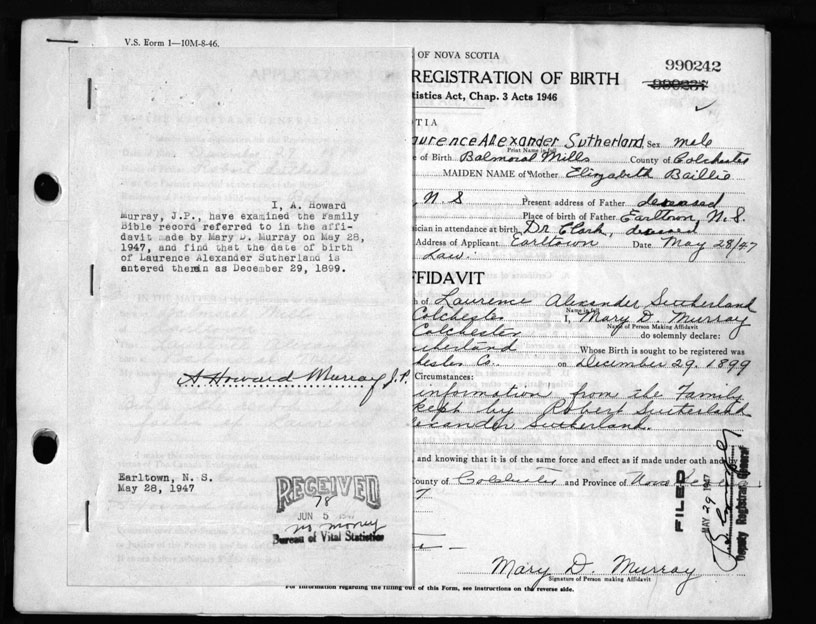 V.S. Form 1—10M-8-46.
OF NOVA SCOTIA
990242
990237
REGISTRATION OF BIRTH
tistics Act, Chap. 3 Acts 1946
OTIA
aurence Alexander Sutherland Sex male
Print Name in full
e of Birth Balmoral Mills County of Colchester
MAIDEN NAME of Mother Elizabeth Baillie
, N.S Present address of Father deceased
Place of birth of Father Earltown, N.S.
sician in attendance at birth Dr Clark, deceased
Address of Applicant Earltown Date May 28/47
Law.
I, A. Howard
Murray, J.P., have examined the Family
Bible record referred to in the affi-
davit made by Mary D. Murray on May 28,
1947, and find that the date of birth
of Laurence Alexander Sutherland is
entered therein as December 29, 1899.
A. Howard Murray J.P.
Earltown, N. S.
May 28, 1947
RECEIVED
78
JUN 5 1947
no money
Bureau of Vital Statistics
FFIDAVIT
h of Laurence Alexander Sutherland
Name in full
Colchester I, Mary D. Murray
Name of Person Making Affidavit
Colchester do solemnly declare:
utherland Whose Birth is sought to be registered was
hester Co. on December 29. 1899
Circumstances:
information from the Family
kept by Robert Sutherland
lexander Sutherland.
and knowing that it is of the same force and effect as if made under oath and
County of Colchester and Province of Nova
7
FILED
MAY 29 1947
Deputy Registrar General
Mary D. Murray
Signature of Person making Affidavit
For information regarding the filling out of this Form, see instructions on the reverse side.